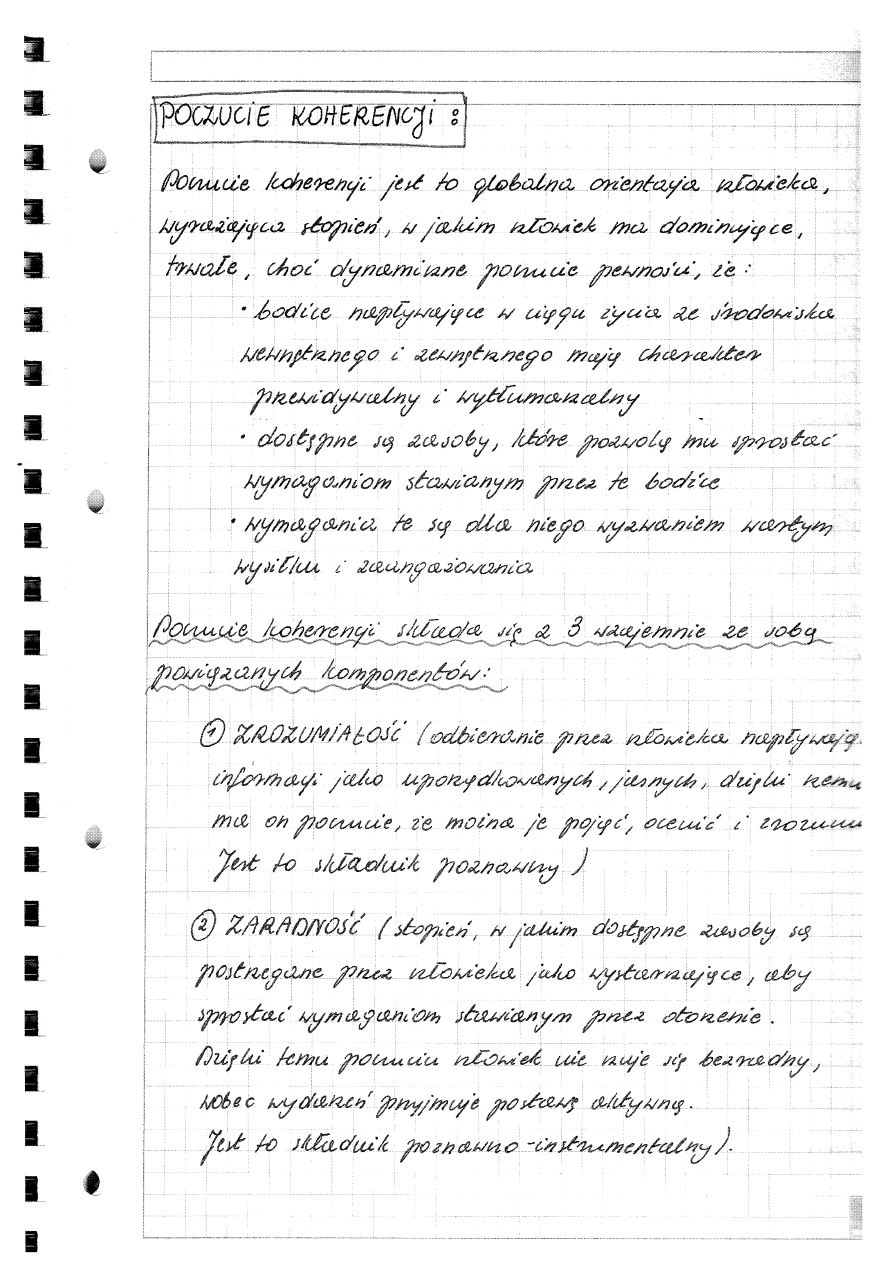 POCZUCIE KOHERENCJI :
Poczucie koherencji jest to globalna orientacja człowieka,
wyrażająca stopień, w jakim człowiek ma dominujące,
trwałe, choć dynamiczne poczucie pewności, że:
• bodźce napływające w ciągu życia ze środowiska
wewnętrznego i zewnętrznego mają charakter
przewidywalny i wytłumaczalny
• dostępne są zasoby, które pozwolą mu sprostać
wymaganiom stawianym przez te bodźce
• wymagania te są dla niego wyzwaniem wartym
wysiłku i zaangażowania
Poczucie koherencji składa się z 3 wzajemnie ze sobą
powiązanych komponentów:
① ZROZUMIAŁOŚĆ (odbieranie przez człowieka napływają
informacji jako uporządkowanych, jasnych, dzięki czemu
ma on poczucie, że można je pojąć, ocenić i zrozumi
Jest to składnik poznawczy)
② ZARADNOŚĆ (stopień, w jakim dostępne zasoby są
postrzegane przez człowieka jako wystarczające, aby
sprostać wymaganiom stawianym przez otoczenie.
Dzięki temu poczuciu człowiek nie czuje się bezradny,
wobec wydarzeń przyjmuje postawę aktywną.
Jest to składnik poznawczo-instrumentalny).